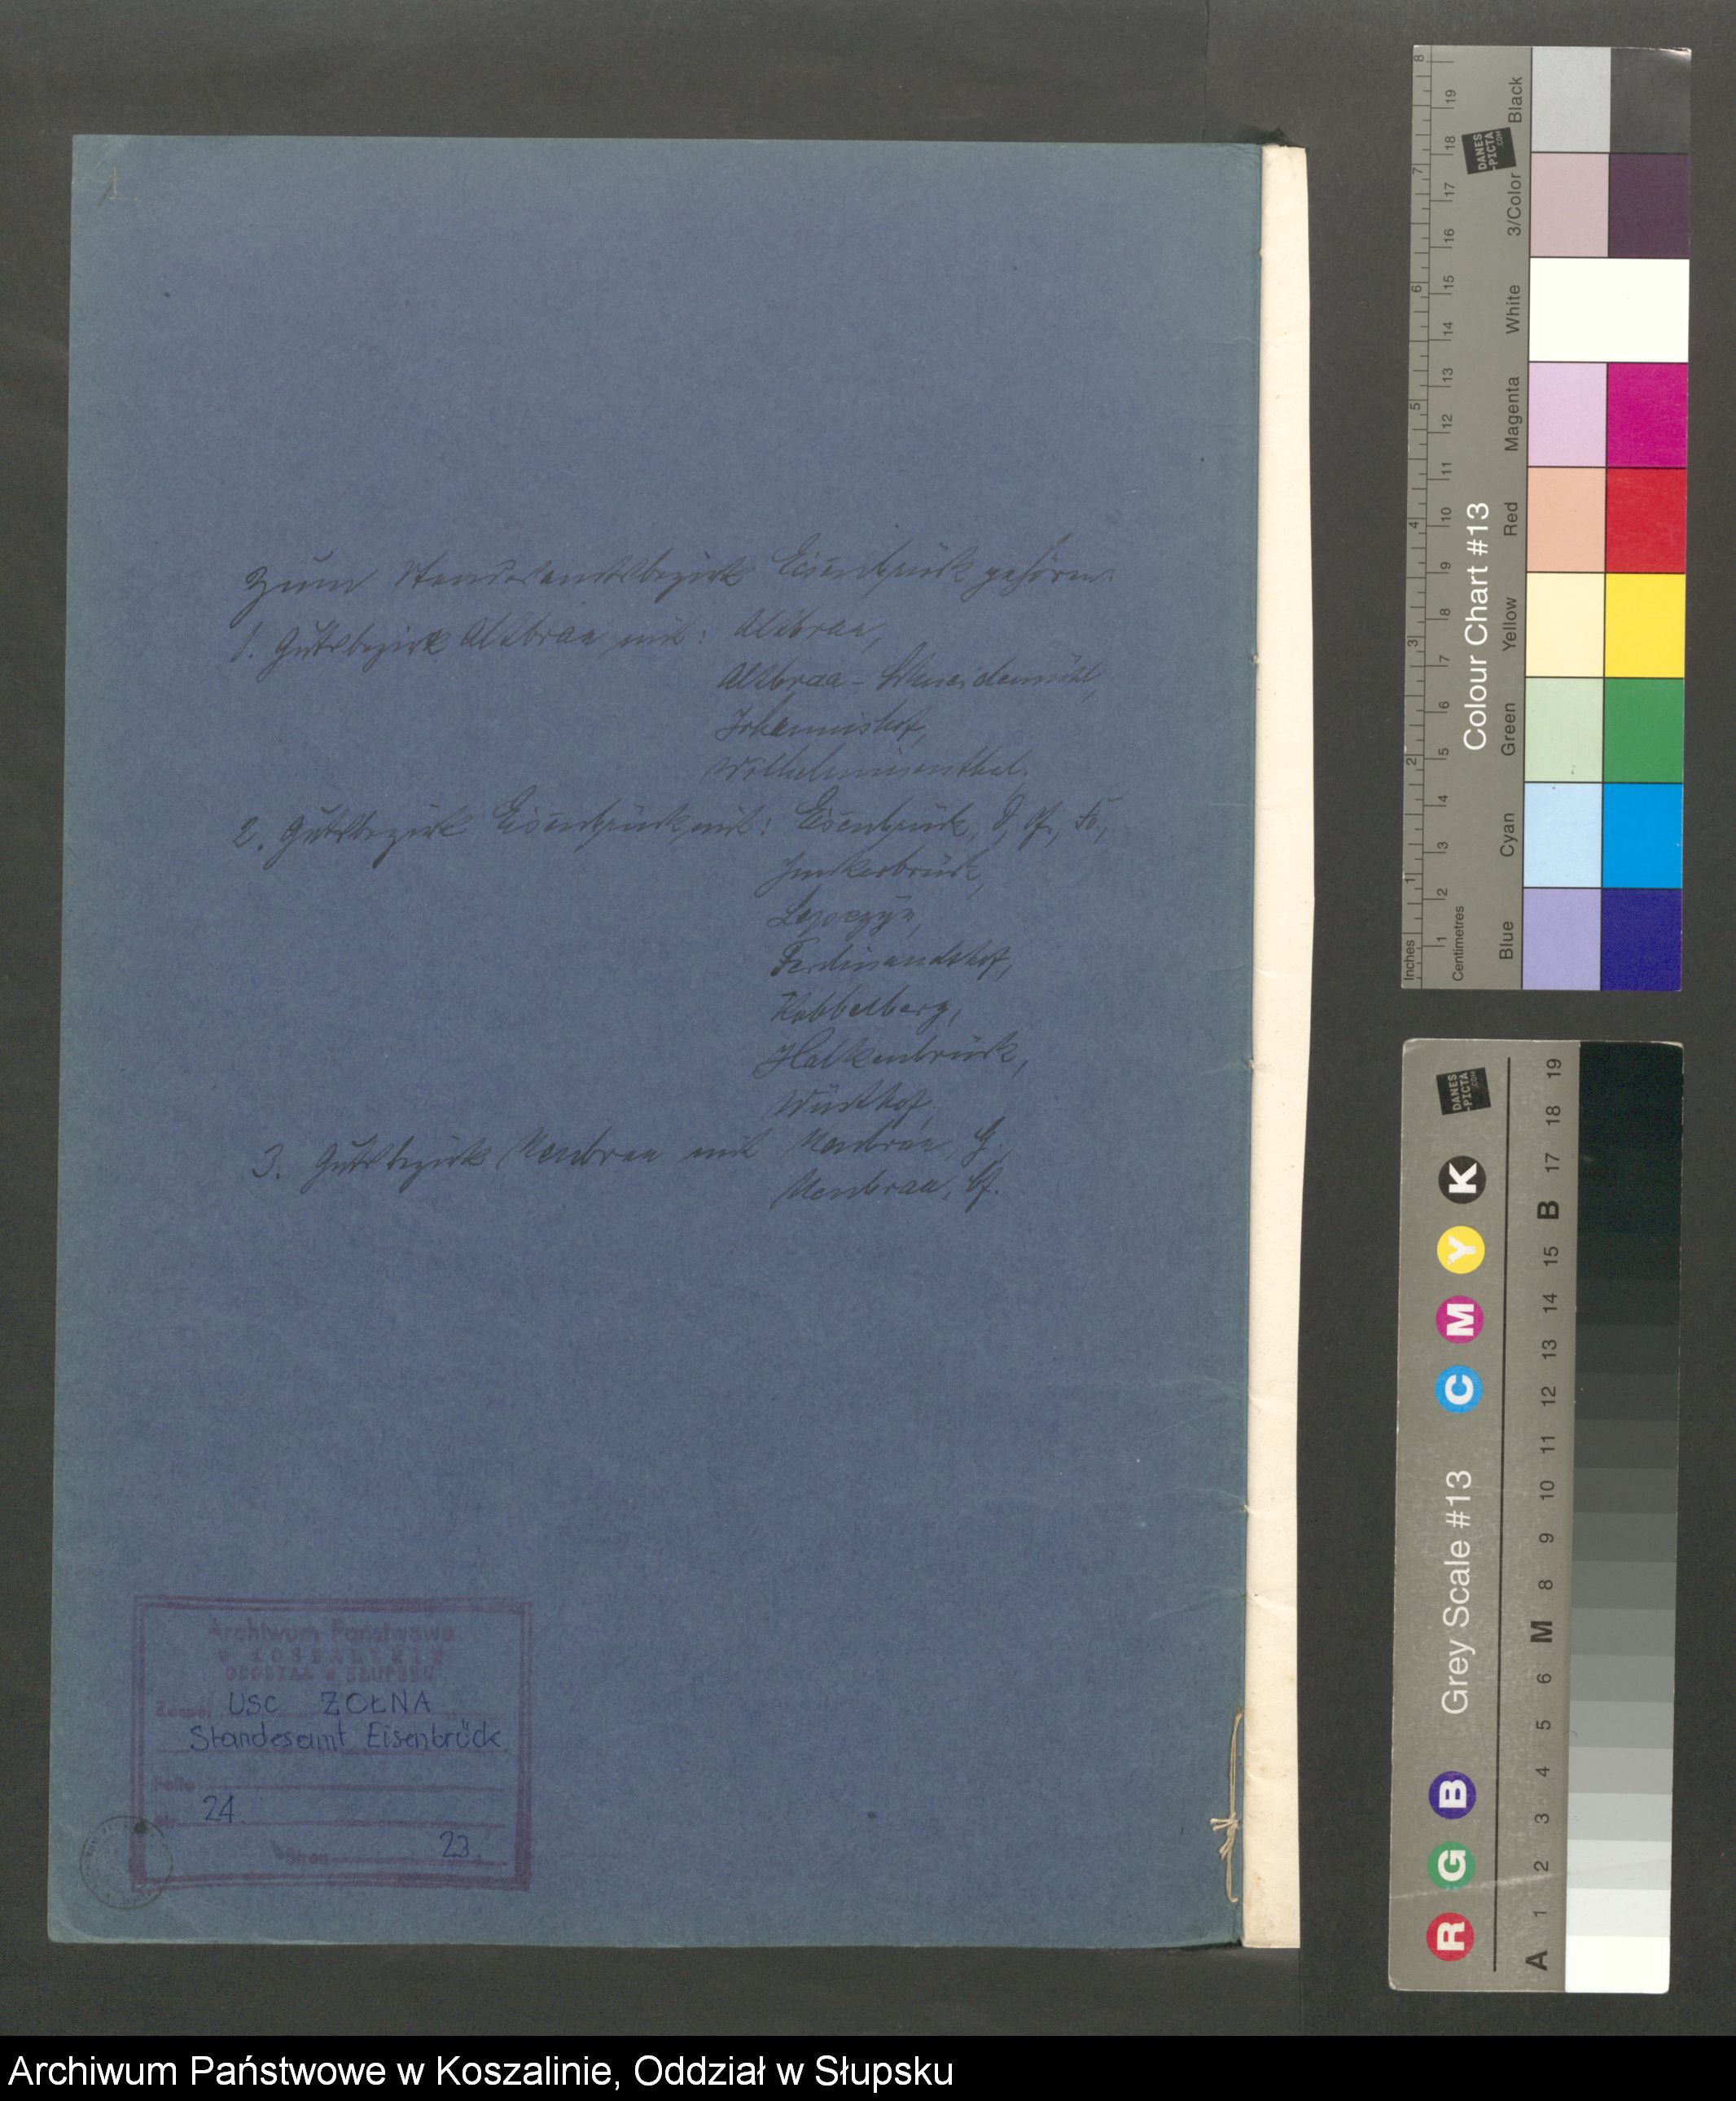 1
Zum Standesamtsbezirk Eisenbrück gehören:
1. Gutsbezirk Altbraa mit: Altbraa,
Altbraa - Schneidemühl,
Johannishof,
Wilhelminenthal.
2. Gutsbezirk Eisenbrück mit: Eisenbrück,
Junkerbrück,
Ferdinandshof,
Kabbelberg,
3. Gutsbezirk Neubraa mit Neubraa, G.,
Neubraa,
Archiwum Państwowe
W KOSZALINIE
ODDZIAŁ w SŁUPSKU
Zespół USC ŻOŁNA
Standesamt Eisenbrück
Nr 24.
Stron 23.
Colour Chart #13
Inches
1 2 3 4 5 6 7 8
Centimetres
1 2 3 4 5 6 7 8 9 10 11 12 13 14 15 16 17 18 19
Blue Cyan Green Yellow Red Magenta White 3/Color Black
DANES
-PICTA
.COM
Grey Scale #13
R G B C M Y K
A 1 2 3 4 5 6 M 8 9 10 11 12 13 14 15 B 17 18 19
DANES
-PICTA
.COM
Archiwum Państwowe w Koszalinie, Oddział w Słupsku